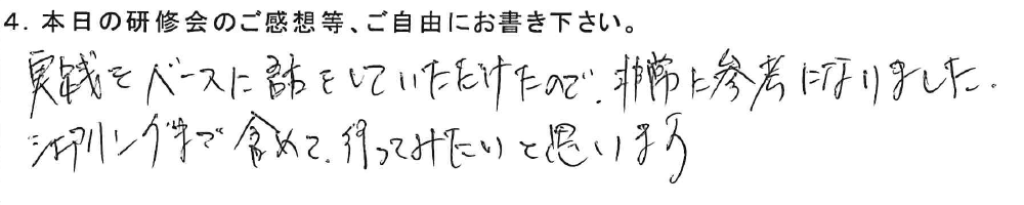 4. 本日の研修会のご感想等、ご自由にお書き下さい。
実践をベースに話をしていただけたので、非常に参考になりました.
シェアリングまで含めて、行ってみたいと思います